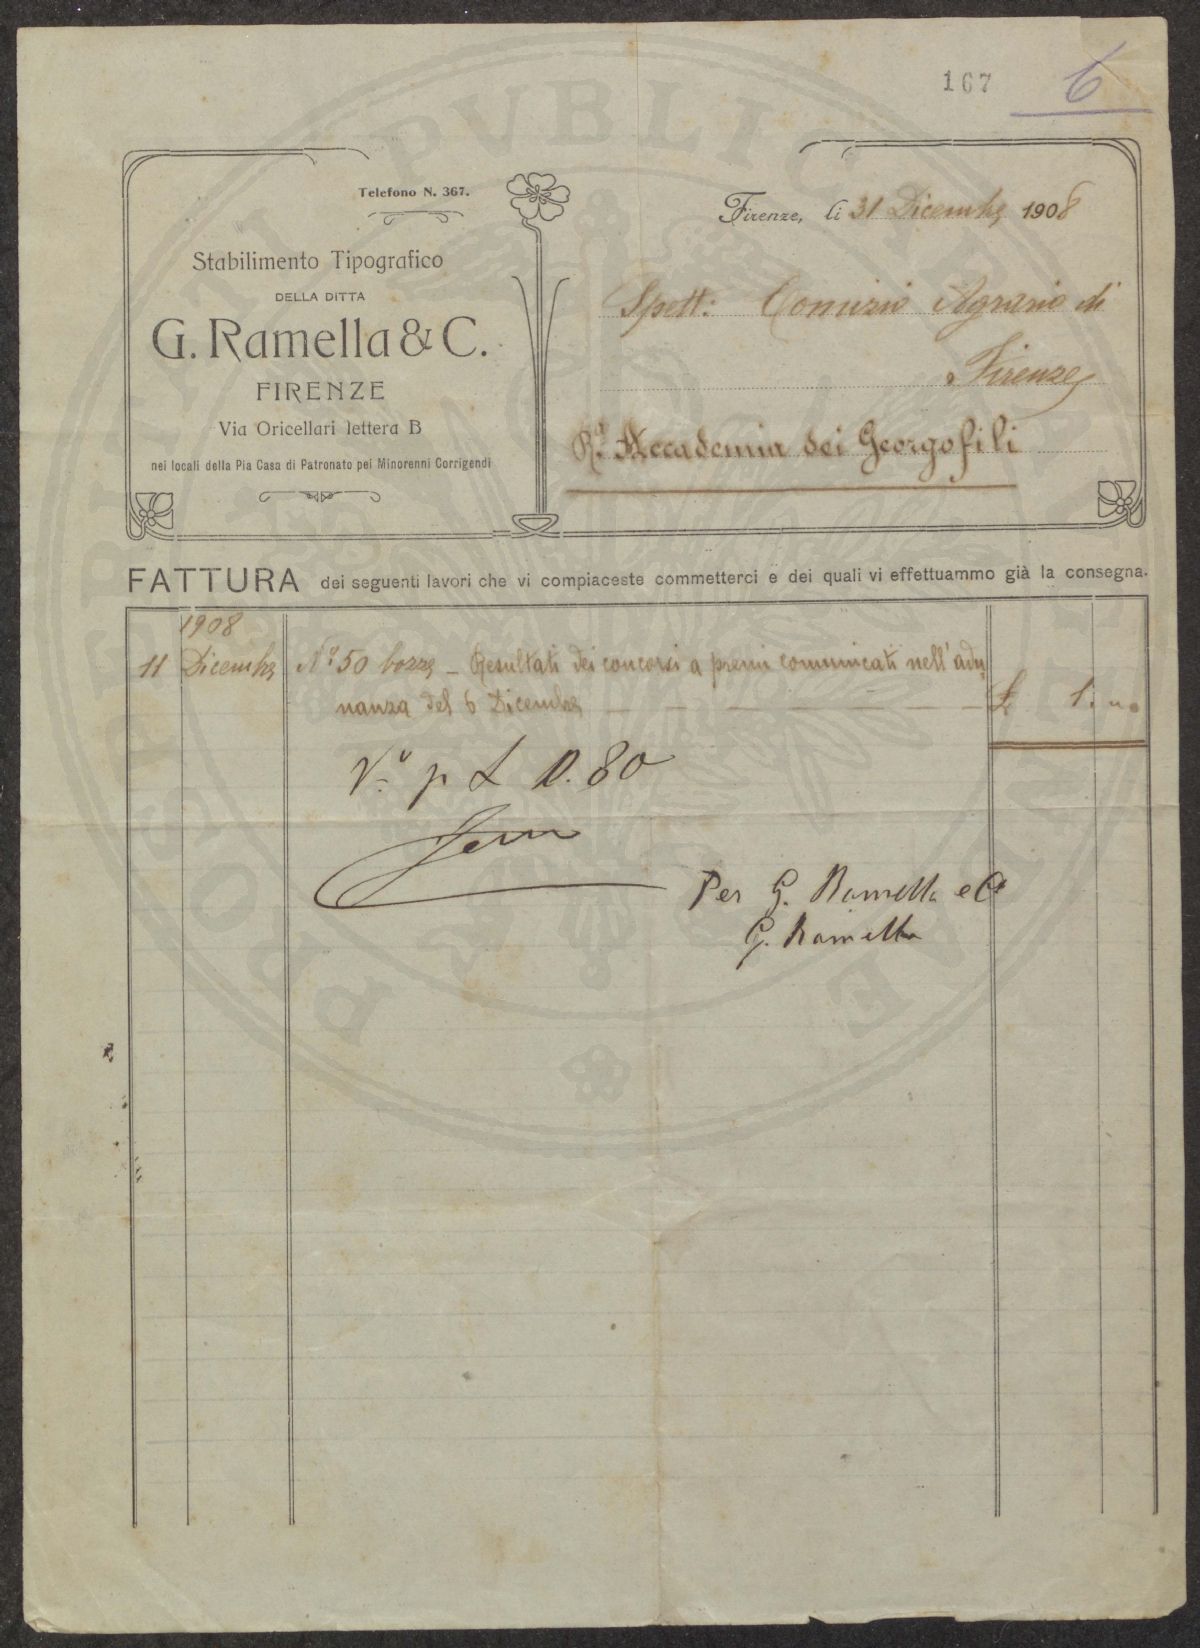 167 6
Telefono N. 367.
Stabilimento Tipografico
DELLA DITTA
G. Ramella & C.
FIRENZE
Via Oricellari lettera B
nei locali della Pia Casa di Patronato pei Minorenni Corrigendi
Firenze, li 31 Dicembre 1908
Spett: Comizio Agrario di
Firenze
R.ª Accademia dei Georgofili
FATTURA dei seguenti lavori che vi compiaceste commetterci e dei quali vi effettuammo già la consegna.
1908
11 Dicembre N.º 50 bozze - Resultati dei concorsi a premi comunicati nell'adu
nanza del 6 Dicembre £ 1.
V.º p £ 0.80
Per G. Ramella e C.
G. Ramella